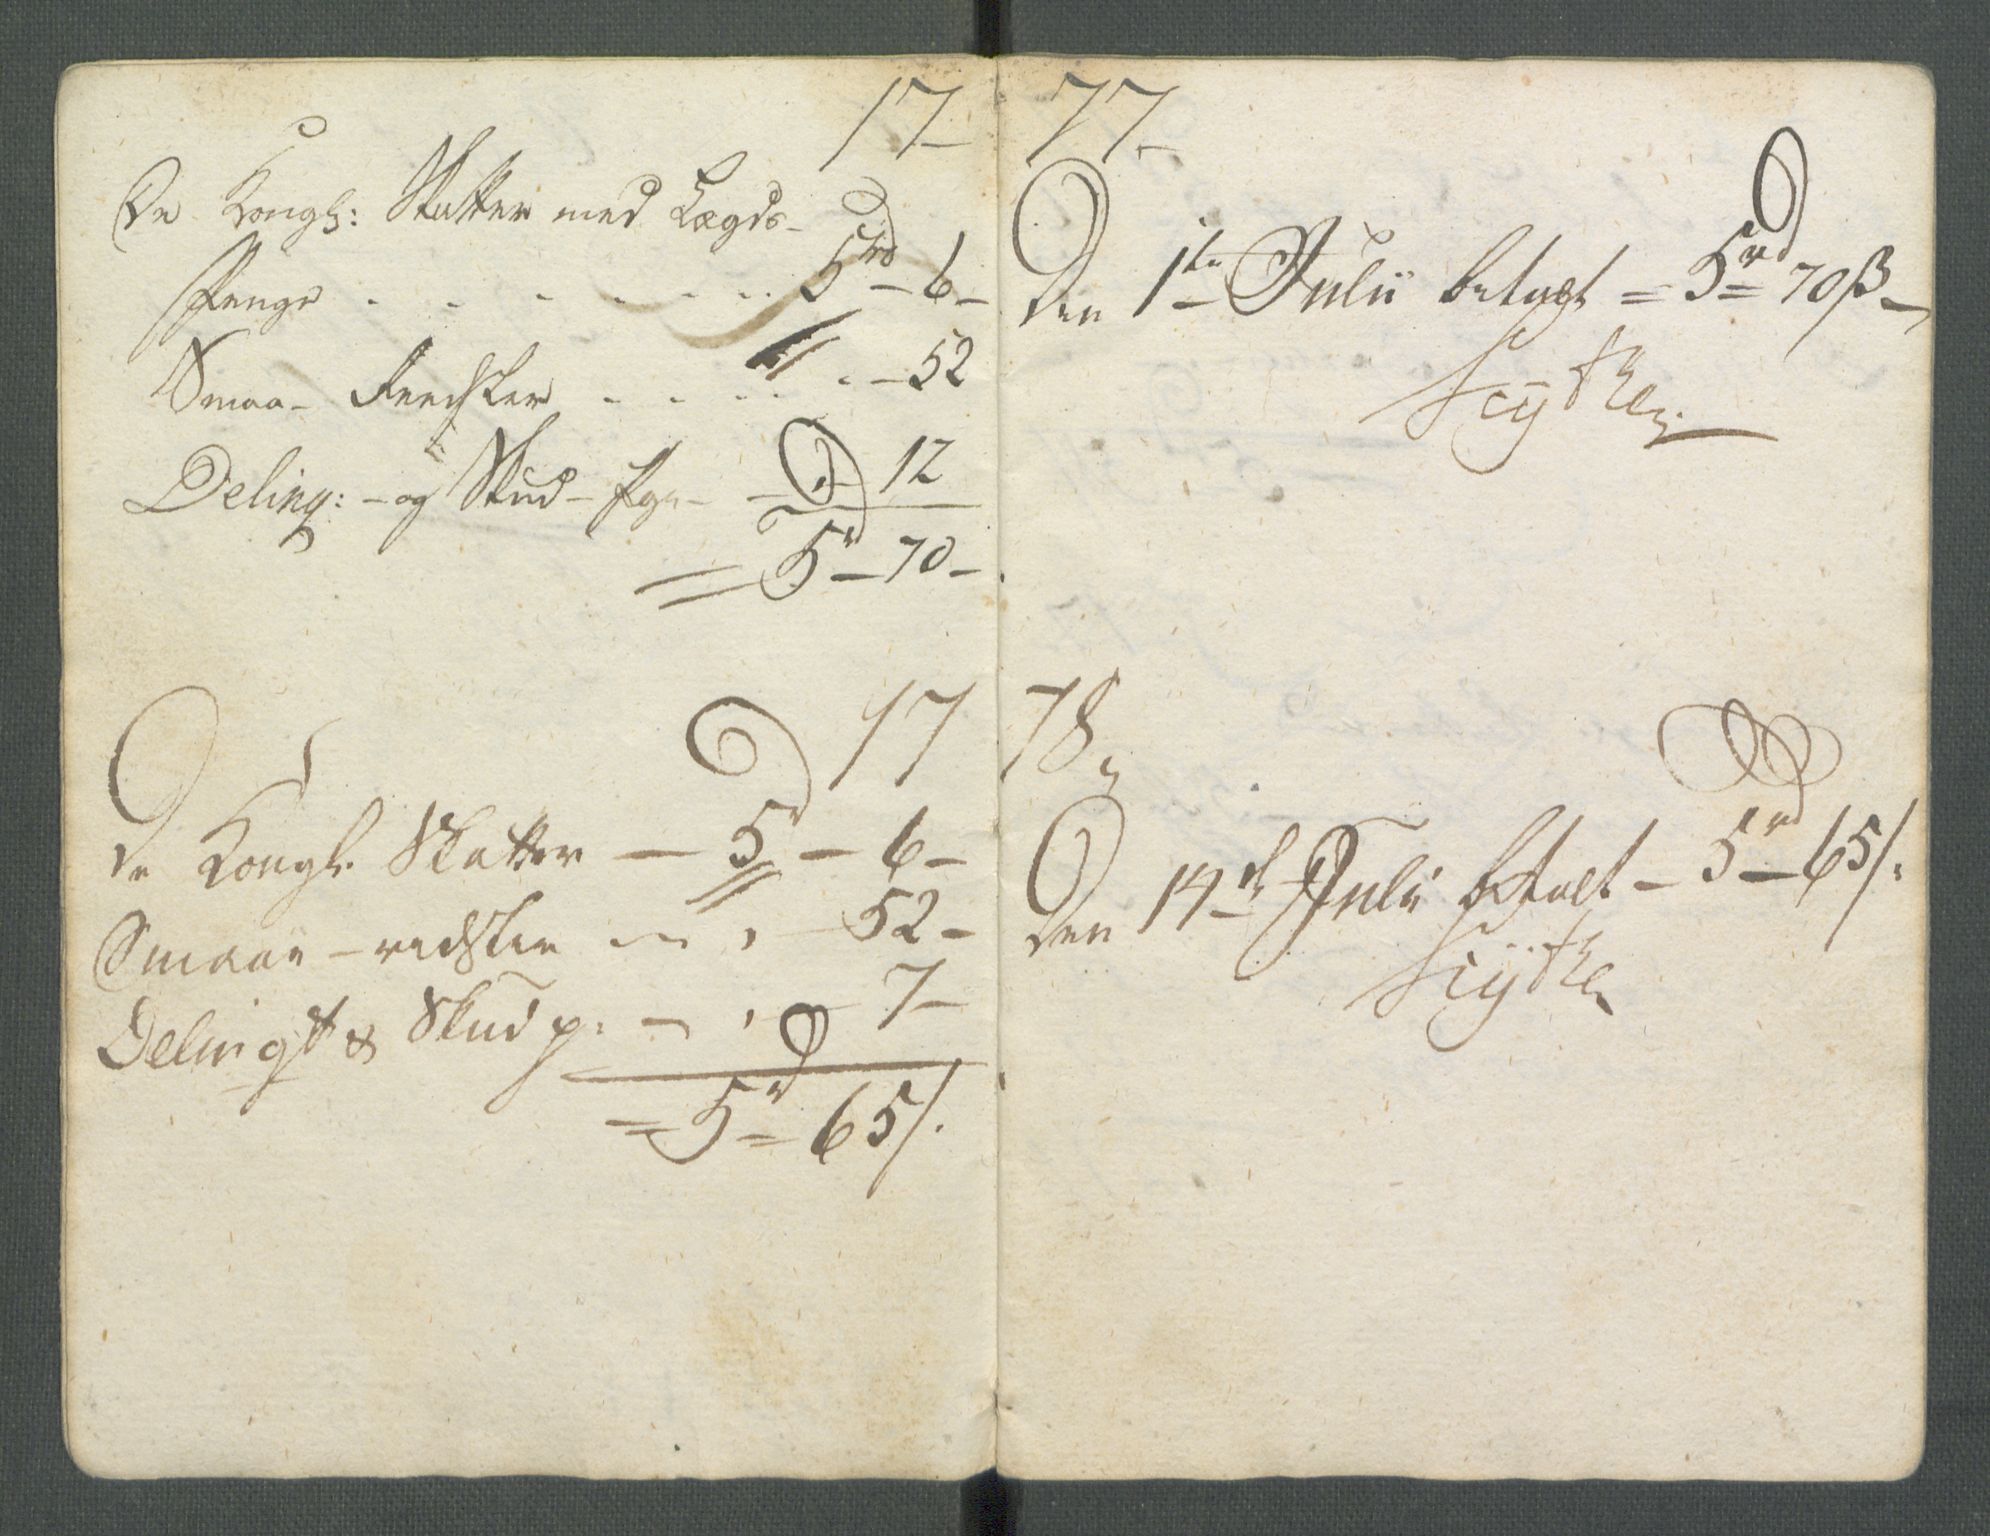 17 77
De Kongl: Skatter med Lægds-
Penge . . . . . . . 5 rd - 6 -
Smaa- Reedsler . . . . - 52
Deling: - og Skud- Pge - 12
5 r - 70 -
Den 1te Julii betalt = 5 rd = 70 ß
17 78
De Kongl. Skatter - 5 - 6 -
Smaae - redsler - , - 52 -
Delingt & Skud p: - , - 7 -
= 5 rd = 65 /.
Den 14de Julii betalt - 5 rd - 65 /.